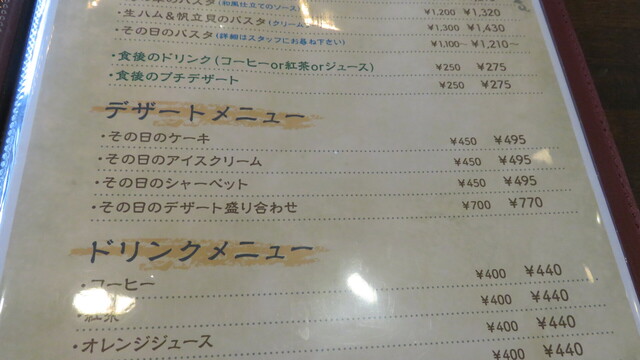 のパスタ(和風仕立てのソース) ¥1,200 ¥1,320
・生ハム&帆立貝のパスタ(クリーム ¥1,300 ¥1,430
・その日のパスタ(詳細はスタッフにお尋ね下さい) ¥1,100~ ¥1,210~
・食後のドリンク(コーヒーor紅茶orジュース) ¥250 ¥275
・食後のプチデザート ¥250 ¥275
デザートメニュー
・その日のケーキ ¥450 ¥495
・その日のアイスクリーム ¥450 ¥495
・その日のシャーベット ¥450 ¥495
・その日のデザート盛り合わせ ¥700 ¥770
ドリンクメニュー
・コーヒー ¥400 ¥440
・紅茶 ¥400 ¥440
・オレンジジュース ¥400 ¥440
¥400 ¥440